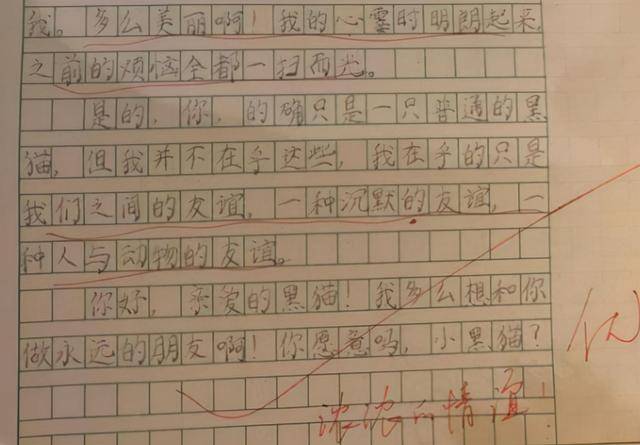 我。多么美丽啊！我的心灵时明朗起来，
之前的烦恼全都一扫而光。
是的，你，的确只是一只普通的黑
猫，但我并不在乎这些，我在乎的只是
我们之间的友谊，一种沉默的友谊，一
种人与动物的友谊。
你好，亲爱的黑猫！我多么想和你
做永远的朋友啊！你愿意吗，小黑猫？
优
浓浓的情谊！